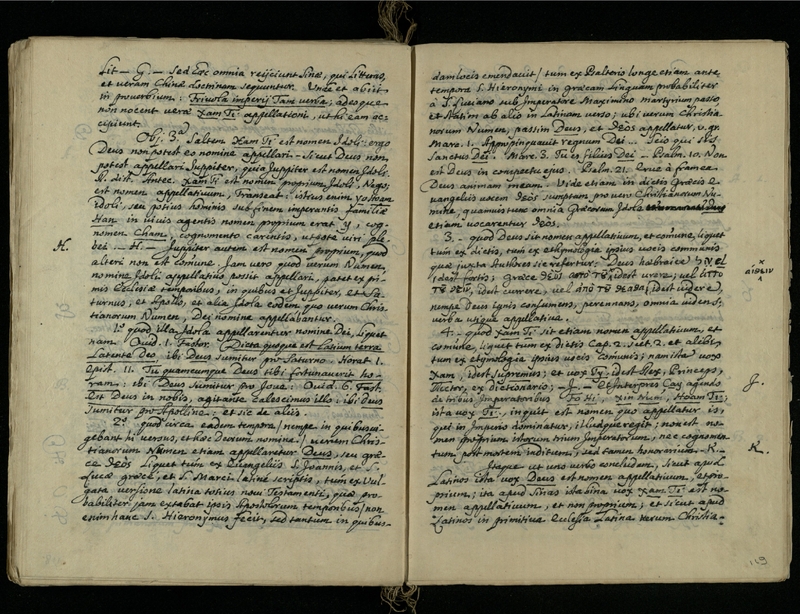 Lit — G. — Sed hæc omnia reijciunt Sinæ, qui Litteras,
et veram Chinæ doctrinam sequuntur. Unde et abijt
in proverbium: Frivola imperij Tam verba; adeoque
non nocent veræ Xam Ti appellationi, ut hi eam ac-
cipiunt.
Obj. 3.º Saltem Xam Ti est nomen Idoli: ergo
Deus non potest eo nomine appellari — Sicut Deus non
potest appellari Juppiter, quia Juppiter est nomen Idoli.
R. dist. Antec. Xam Ti est nomen proprium Idoli, Nego;
est nomen appellativum, Transeat: istius enim
idoli, seu potius hominis sub finem imperantis familiæ
Han in vivis agentis nomen proprium erat y, cog-
nomen Cham, cognomento carinsis, utpote viri ple-
bei. — H. — Juppiter autem est nomen proprium, quod
H.
alteri non est comune. Jam vero quod verum Numen,
nomine Idoli appellativo possit appellari, patet ex pri-
mis Ecclesiæ temporibus, in quibus et Juppiter, et Sa-
turnus, et Apollo, et aliæ Idola eodem quo verum Chris-
tianorum Numen, Dei nomine appellabantur.
1.º quod illa Idola appellarentur nomine Dei, liquet
nam Ovid. 1. Fastor. Dicta quoque est Latium terra
Latente Deo. ibi Deus sumitur pro Saturno. Horat. 1.
Epist. 11. Tu quamcumque Deus tibi fortunaverit ho-
ram: ibi Deus sumitur pro Jove: Ovid. 6. Fast.
Est Deus in nobis, agitante calescimus illo: ibi deus
sumitur pro Apolline: et sic de aliis.
2.º quod circa eadem tempora / nempe in quibus vi-
gebant hi versus, et hæc deorum nomina / verum Chris-
tianorum Numen etiam appellaretur Deus, seu græ-
ce Θεὸς liquet tum ex Evangeliis S. Joannis, et S.
Lucæ græce, et S. Marci latine scriptis, tum ex Vul-
gata versione latina totius novi Testamenti, quæ pro-
babiliter jam extabat ipsis Apostolorum temporibus / non
enim hanc S. Hieronymus fecit, sed tantum in quibus-
dam locis emendavit / tum ex Psalterio longe etiam ante
tempora S. Hieronymi in græcam Linguam probabiliter
à S. Luciano sub Imperatore Maximino martyrium passo,
et statim ab alio in Latinam verso; ubi verum Christia-
norum Numen, passim Deus, et Θεὸς appellatur, v. gr.
Marc. 1. Appropinquavit regnum Dei... Scio qui sis
Sanctus Dei. Marc. 3. Tu es filius Dei — Psalm. 10. Non
est Deus in conspectu ejus. Psalm. 21. Erue à framea
Deus animam meam. Vide etiam in dictis Græcis E-
vangeliis vocem Θεὸς sumptam pro vero Christianorum Nu-
mine, quamvis tunc omnia Græcorum Idola
etiam vocarentur Θεὸς.
3. — quod Deus sit nomen appellativum, et comune, liquet
tum ex dictis, tum ex ethymologia ipsius vocis communis
quæ juxta Authores sic refertur: Deus hæbraice אל el
idest fortis; græce Θεὸς ἀπὸ τοῦ idest urere; vel ἀπὸ
αἴθειν
τοῦ θεῖν, idest currere, vel ἀπὸ τοῦ θεᾶσθαι idest videre,
nempe Deus ignis consumens, perennans, omnia videns;
verba utique appellativa.
4. — quod Xam Ti sit etiam nomen appellativum, et
comune, liquet tum ex dictis Cap. 2. sct. 2. et alibi,
tum ex etymologia ipsius vocis comunis; nam ista vox
Xam, idest supremus; et vox Ti, idest Rex, Princeps,
Rector, ex dictionario; — J. — et Interpres Cay agendo
J.
de tribus Imperatoribus Fo Hi, Xin Num, Hoam Ti;
ista vox Ti, inquit est nomen quo appellatur is,
qui in Imperio dominatur, illudque regit; non est no-
men proprium istorum trium Imperatorum, nec cognomen-
tum post mortem inditum, sed tantum honorarium. — K. —
K.
Itaque ut uno verbo concludam, sicut apud
Latinos ista vox Deus est nomen appellativum,
prium; ita apud Sinas ista sina vox Xam Ti est no-
men appellativum, et non proprium; et sicut apud
Latinos in primitiva Ecclesia Latina verum Christia-
119